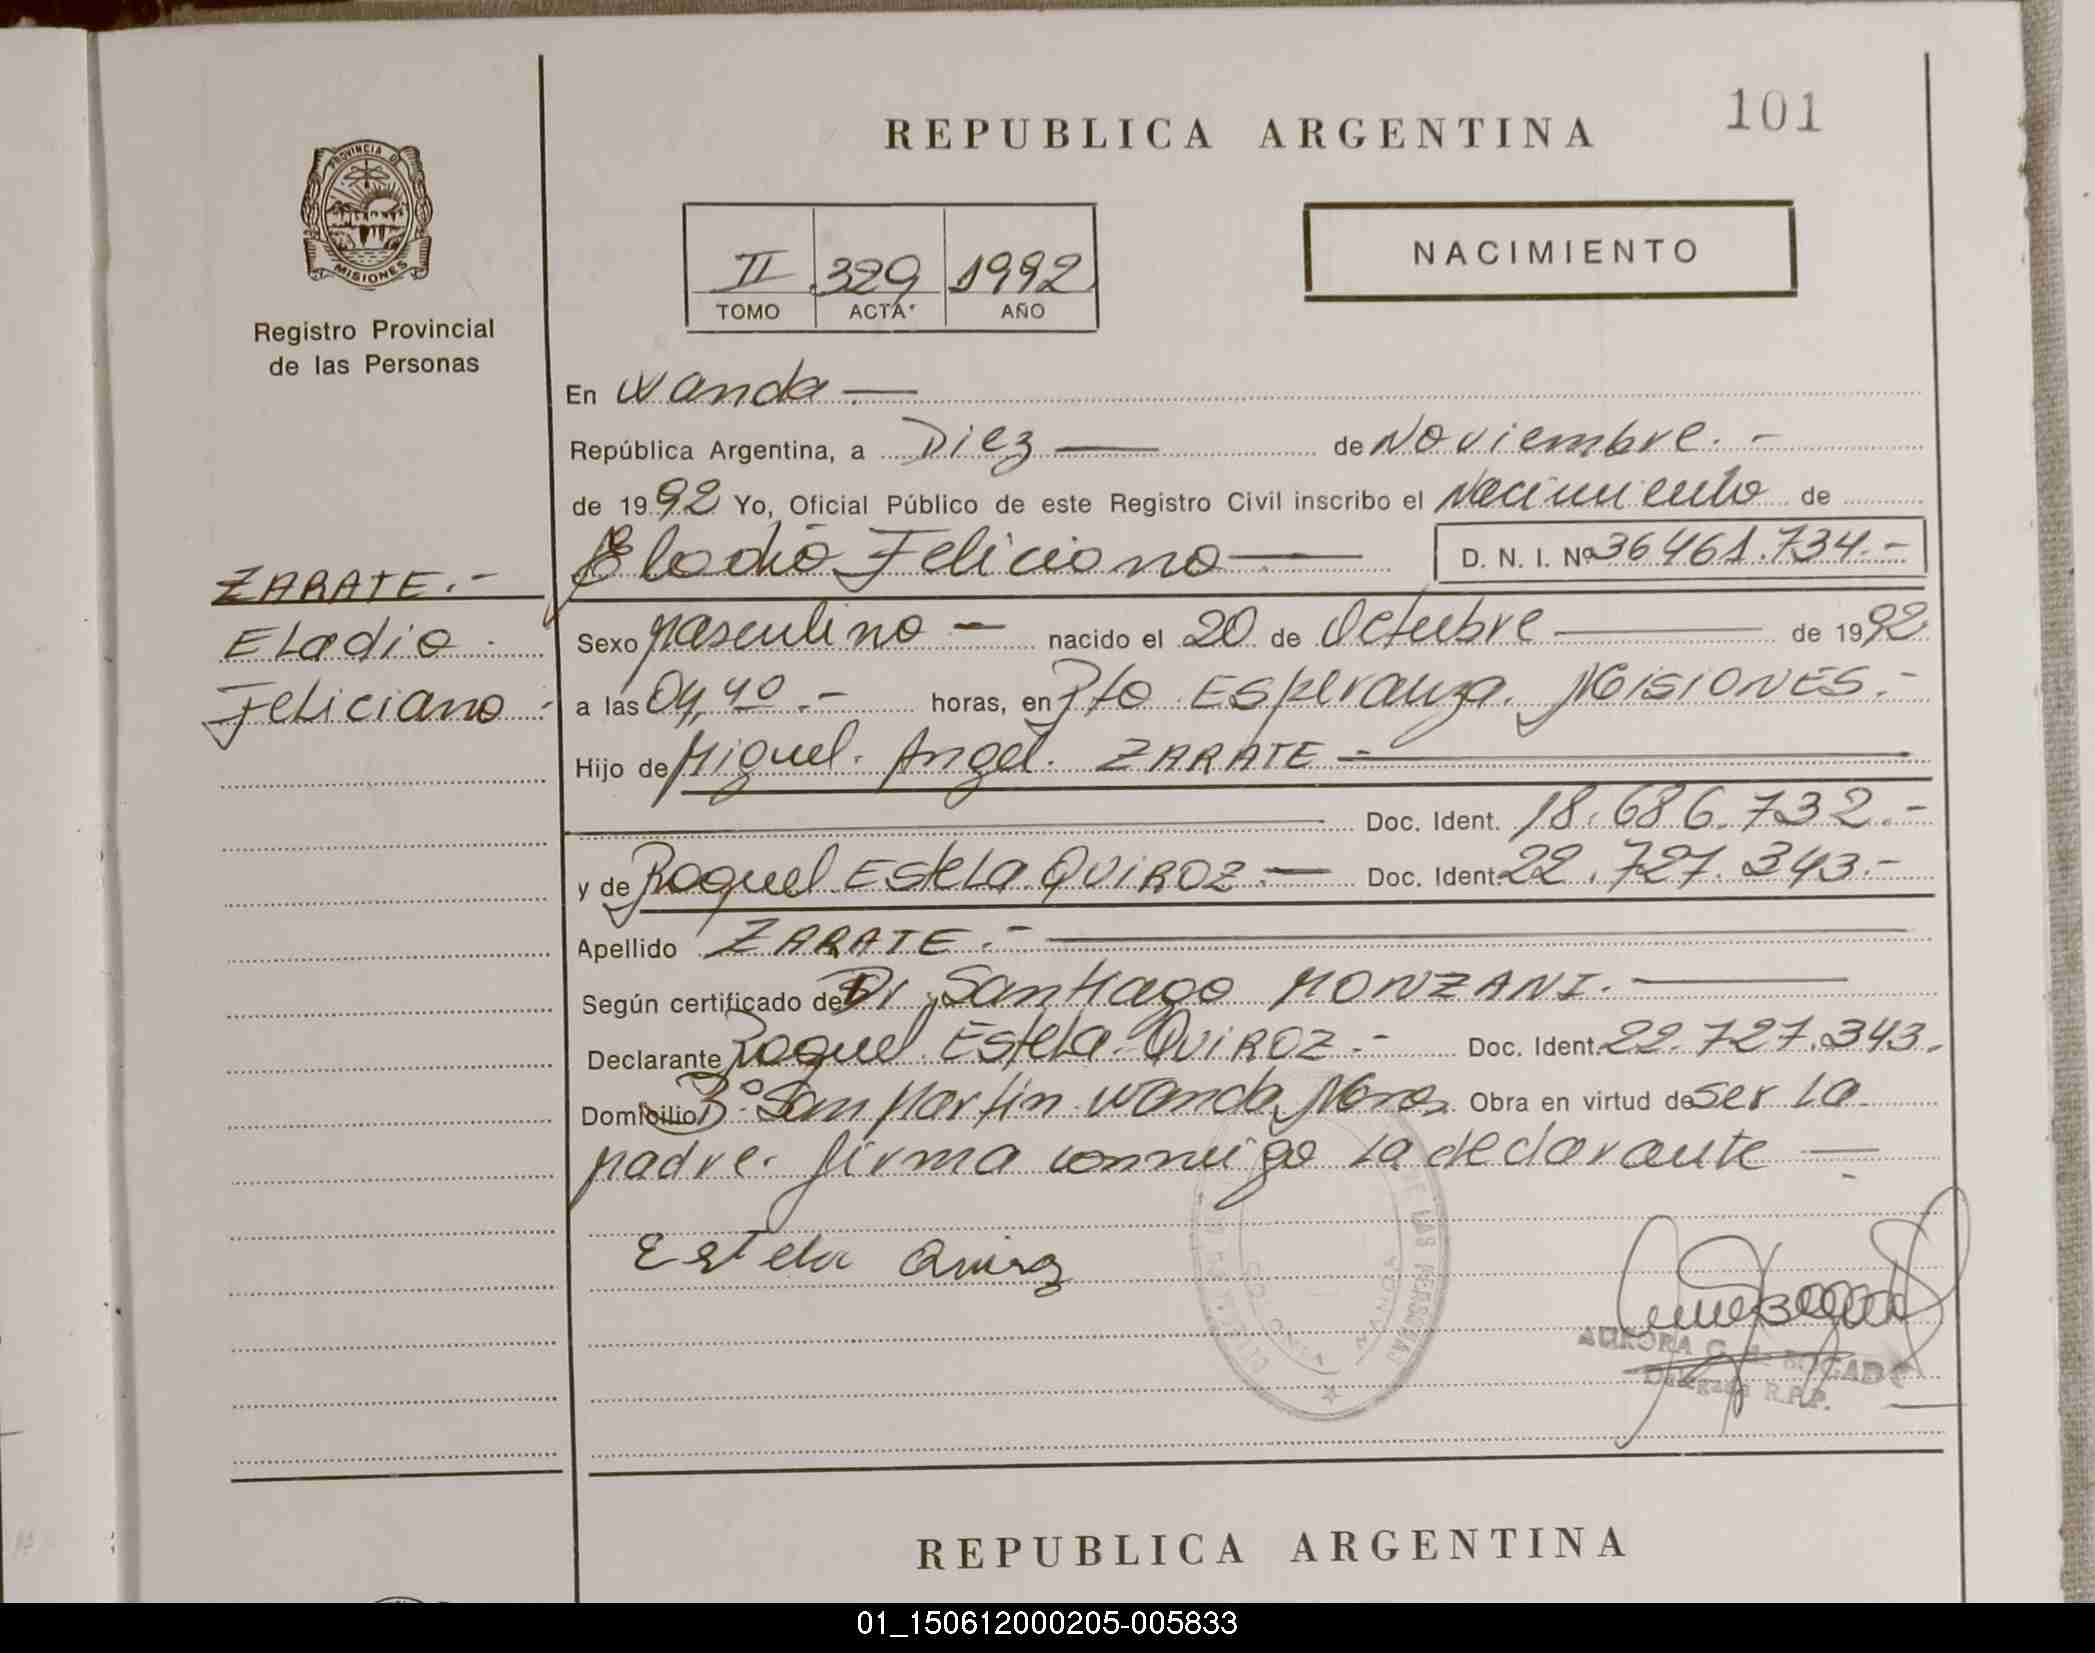 101
REPUBLICA ARGENTINA
PROVINCIA DE
MISIONES
Registro Provincial
de las Personas
NACIMIENTO
II 329 1992
TOMO ACTA AÑO
En Wanda.—
República Argentina, a Diez — de Noviembre.-
de 1992 Yo, Oficial Público de este Registro Civil inscribo el Nacimiento de
Eladio Feliciano — D. N. I. Nº 36461.734.-
ZARATE.-
Eladio
Feliciano
Sexo Masculino — nacido el 20 de Octubre — de 1992
a las 04,40.- horas, en Pto Esperanza. MISIONES.-
Hijo de Miguel. Angel. ZARATE —
Doc. Ident. 18.686.732.-
y de Raquel Estela QUIROZ.— Doc. Ident. 22.727.343.-
Apellido ZARATE.-
Según certificado de Dr Santiago MONZANI.—
Declarante Raquel Estela QUIROZ.- Doc. Ident. 22.727.343.
Domicilio Bº San Martin Wanda Mnes. Obra en virtud de ser La
Madre. firma conmigo la declarante —
Estela Quiroz
DE LAS PERSONAS
WANDA
AURORA C. BOGADO
Delegada R.P.P.
REPUBLICA ARGENTINA
01_150612000205-005833